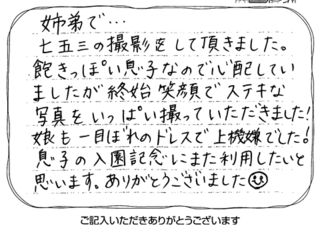 姉弟で…
七五三の撮影をして頂きました。
飽きっぽい息子なので心配してい
ましたが終始笑顔でステキな
写真をいっぱい撮っていただきました!
娘も一目ぼれのドレスで上機嫌でした!
息子の入園記念にまた利用したいと
思います。ありがとうございました
ご記入いただきありがとうございます